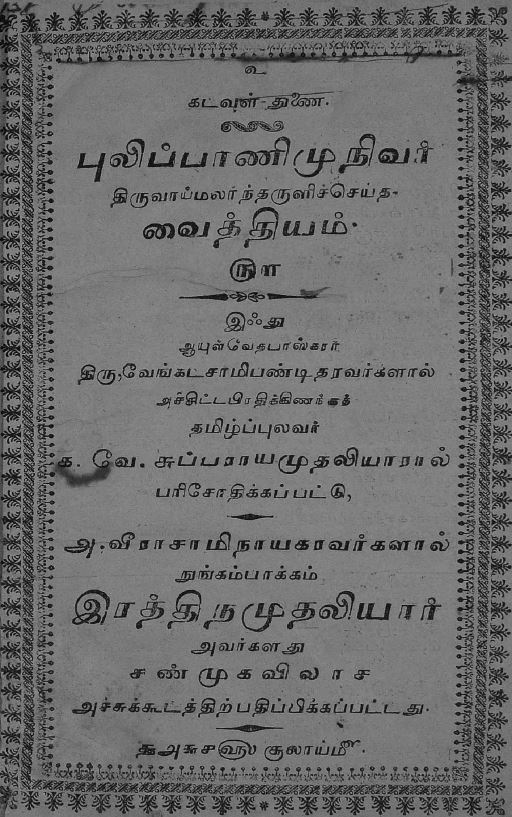 உ
கடவுள்-துணை.
புலிப்பாணிமுநிவர்
திருவாய்மலர்ந்தருளிச்செய்த-
வைத்தியம்.
௫ள
இஃது
ஆயுள்வேதபாஸ்கரர்
திரு,வேங்கடசாமிபண்டிதரவர்களால்
அச்சிட்டபிரதிக்கிணங்கத்
தமிழ்ப்புலவர்
க. வே. சுப்பராயமுதலியாரால்
பரிசோதிக்கப்பட்டு,
அ.வீராசாமிநாயகரவர்களால்
நுங்கம்பாக்கம்
இரத்திநமுதலியார்
அவர்களது
சண்முகவிலாச
அச்சுக்கூடத்திற்பதிப்பிக்கப்பட்டது.